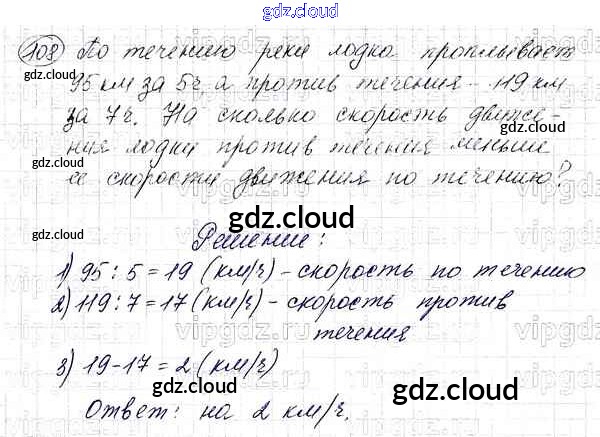 gdz.cloud
108 По течению реки лодка проплывает
gdz.cloud gdz.cloud
95 км за 5ч, а против течения - 119 км
за 7ч. На сколько скорость движе-
gdz.cloud
ния лодки против течения меньше
её скорости движения по течению?
gdz.cloud
Решение:
1) 95 : 5 = 19 (км/ч) - скорость по течению
gdz.cloud
2) 119 : 7 = 17 (км/ч) - скорость против
течения
3) 19 - 17 = 2 (км/ч)
gdz.cloud gdz.cloud
Ответ: на 2 км/ч.